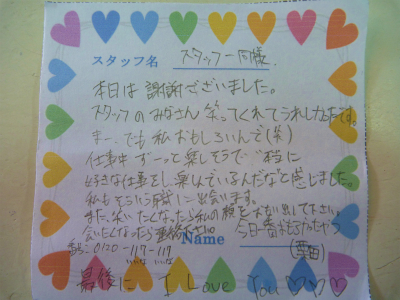 スタッフ名 スタッフ一同様.
本日は 謝謝でございました。
スタッフのみなさん 笑ってくれてうれしかったです。
まー、でも 私おもしろいんで(笑)
仕事中 ずーっと楽しそうで 本当に
好きな仕事をし、楽しんでいるんだなと感じました。
私もそういう職に出会います。
また、笑いたくなったら私の顔をおもい出して下さい
会いたくなったら連絡下さい
番号:0120-117-117
Name
最後に I Love You♡♡♡